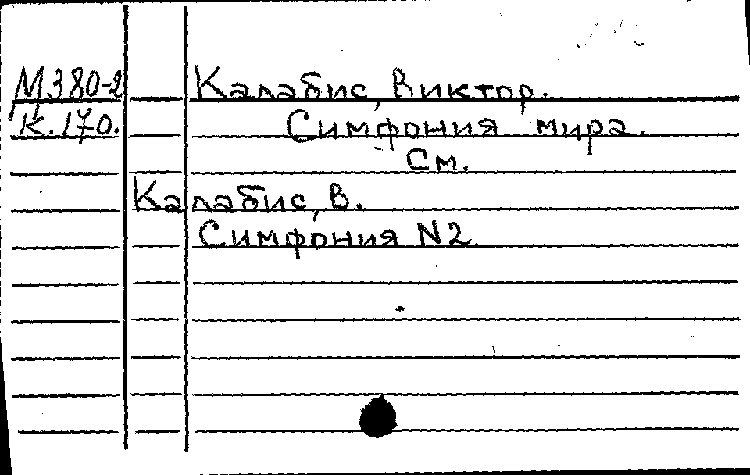 М380-2 Калабис, Виктор.
К.170. Симфония мира.
См.
Калабис, В.
Симфония N2